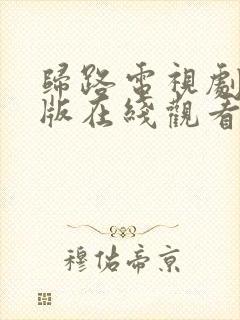 歸路電視劇
版在綫觀看
穆佑帝京